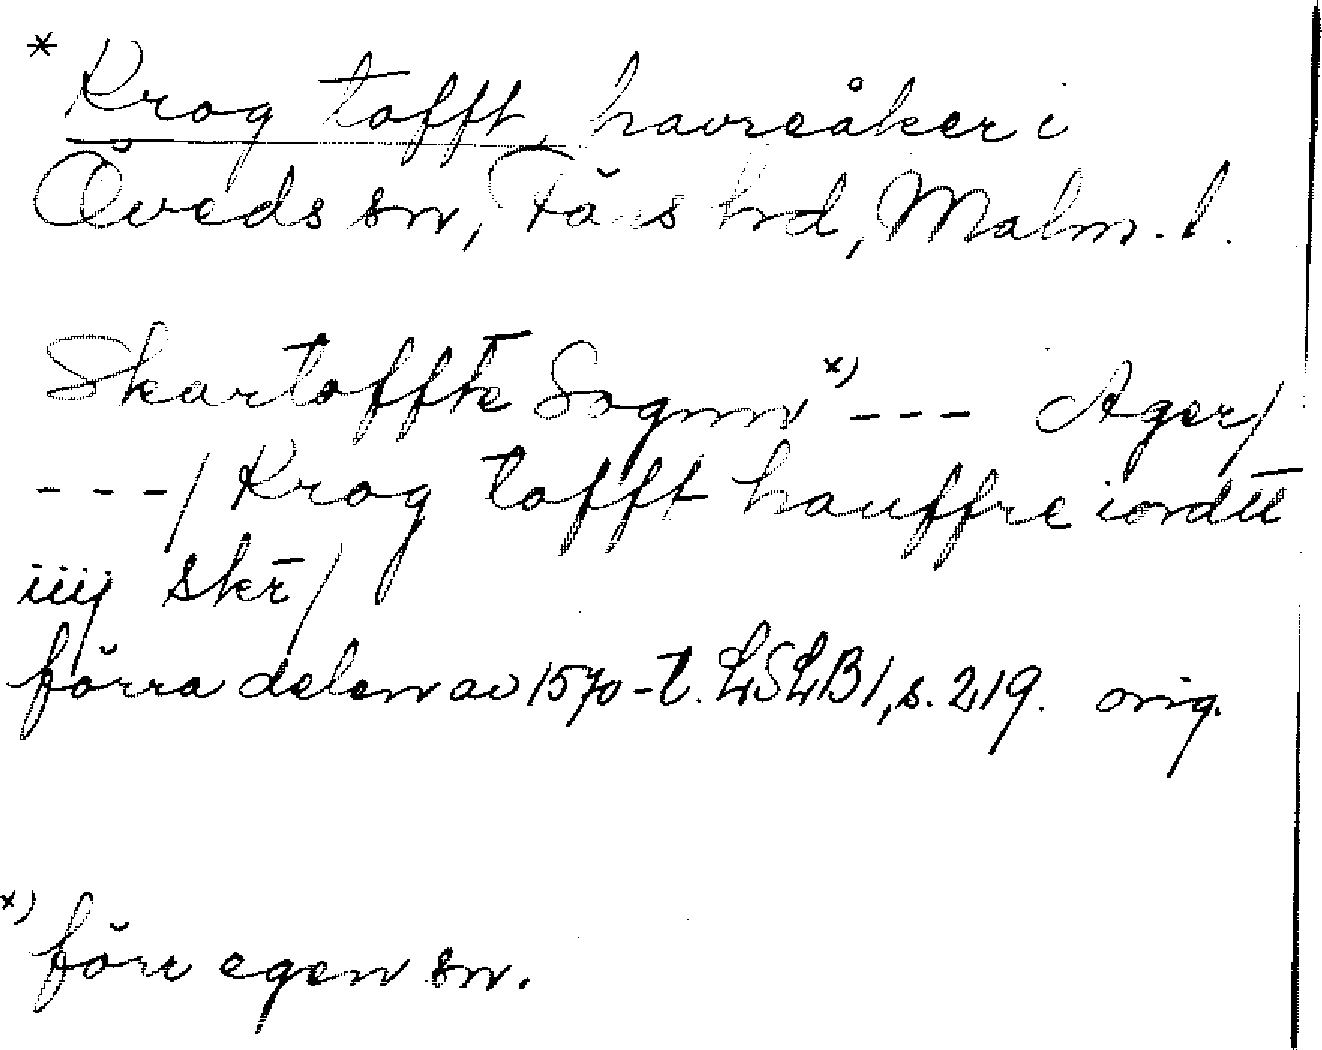 * Krog tofft, havreåker i
Öveds sn, Färs hrd, Malm. l.
Skartoffte Sognn x) --- Ager/
---/ Krog tofft hauffre iordtt
iiij skr̄/
förra delen av 1570-t. LSLB1, s. 219. orig.
x) förr egen sn.